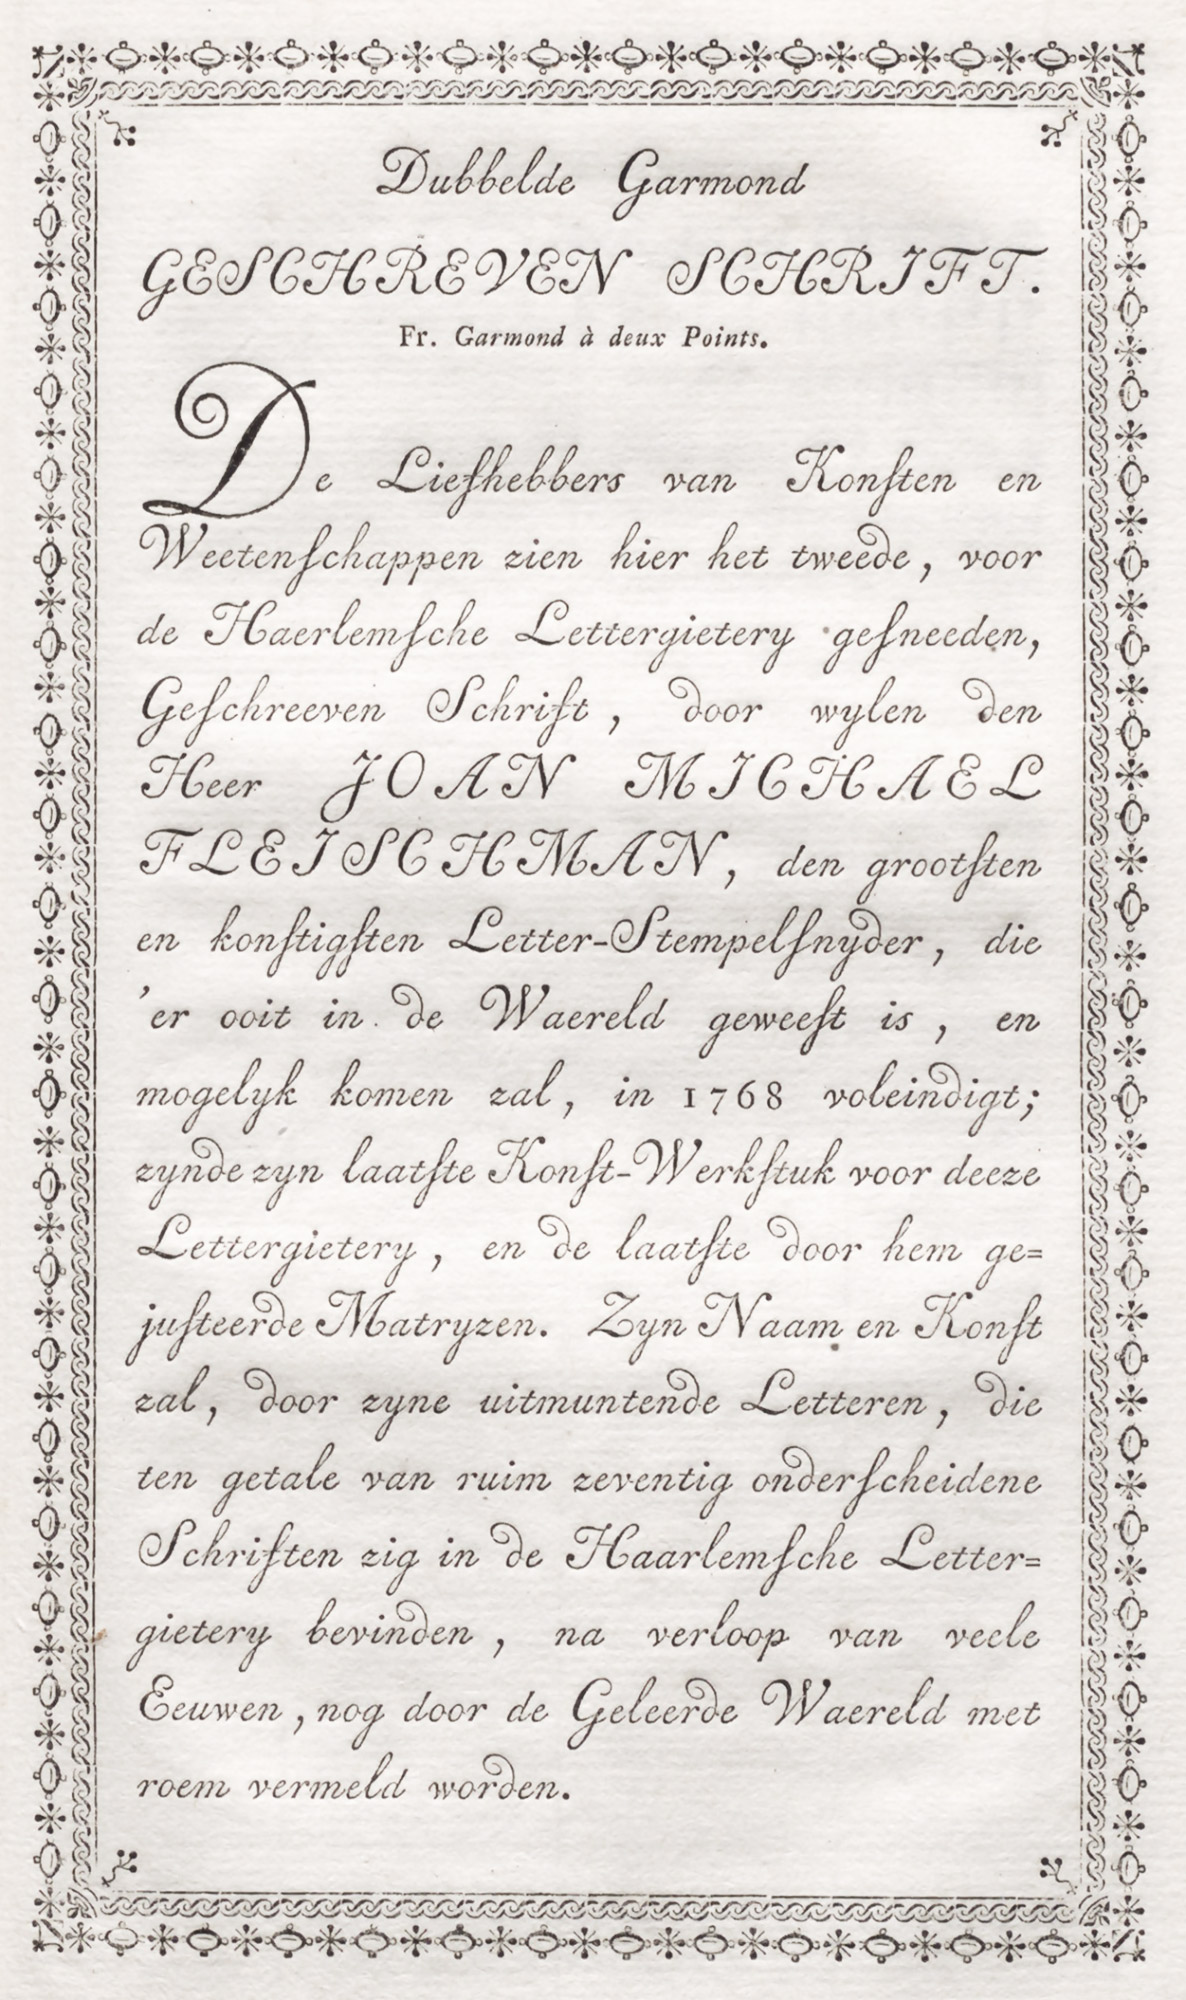 Dubbelde Garmond
GESCHREVEN SCHRIFT.
Fr. Garmond à deux Points.
De Liefhebbers van Konſten en
Weetenſchappen zien hier het tweede, voor
de Haerlemſche Lettergietery geſneeden,
Geſchreeven Schrift, door wylen den
Heer JOAN MICHAEL
FLEISCHMAN, den grootſten
en konſtigſten Letter-Stempelſnyder, die
'er ooit in de Waereld geweeſt is, en
mogelyk komen zal, in 1768 voleindigt;
zynde zyn laatſte Konſt-Werkſtuk voor deeze
Lettergietery, en de laatſte door hem ge=
juſteerde Matryzen. Zyn Naam en Konſt
zal, door zyne uitmuntende Letteren, die
ten getale van ruim zeventig onderſcheidene
Schriften zig in de Haarlemſche Letter=
gietery bevinden, na verloop van veele
Eeuwen, nog door de Geleerde Waereld met
roem vermeld worden.